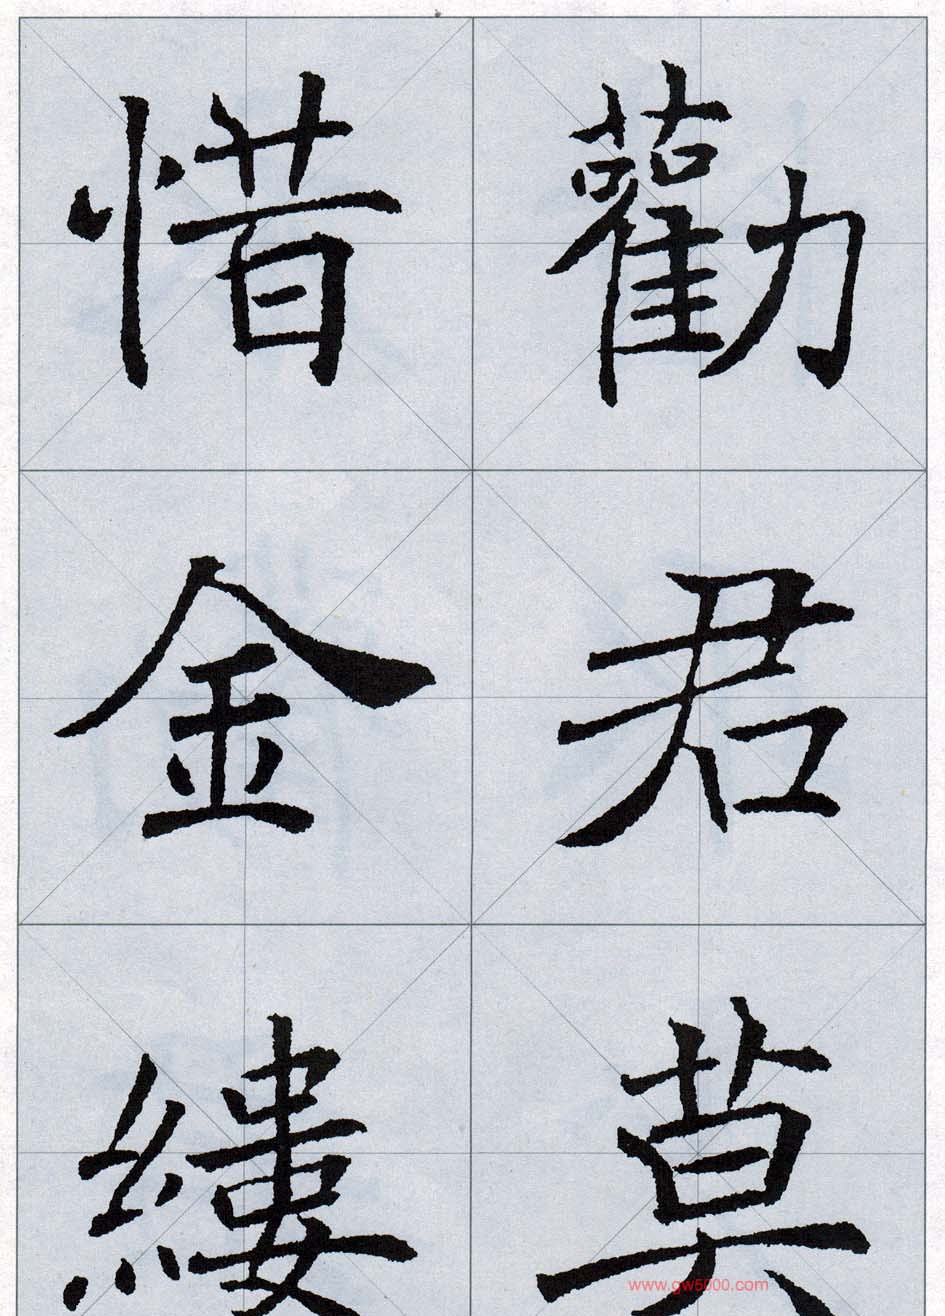 勸君莫
惜金縷
www.gw5000.com